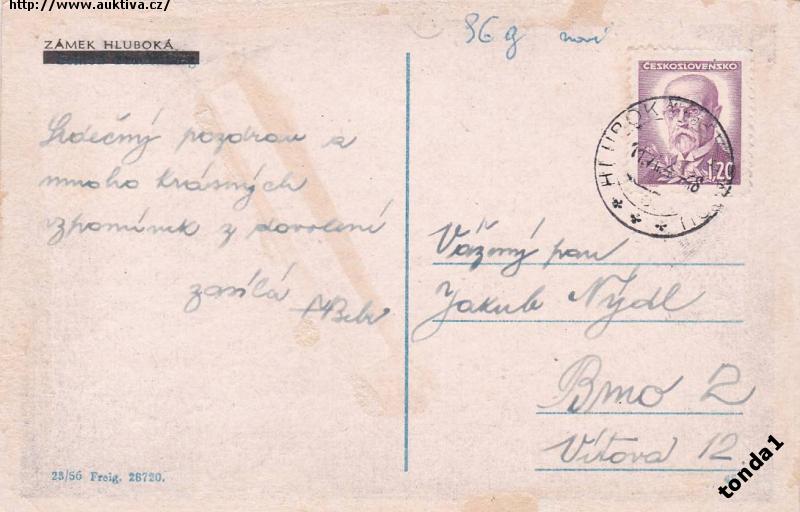 http://www.auktiva.cz/
ZÁMEK HLUBOKÁ
96 g nové
Srdečný pozdrav a
mnoho krásných
vzpomínek z dovolené
zasílá
ČESKOSLOVENSKO
1.20
HLUBOKÁ
Vážený pan
Jakub Nýdl
Brno 2
Vítova 12
23/56 Freig. 26720.
tonda1